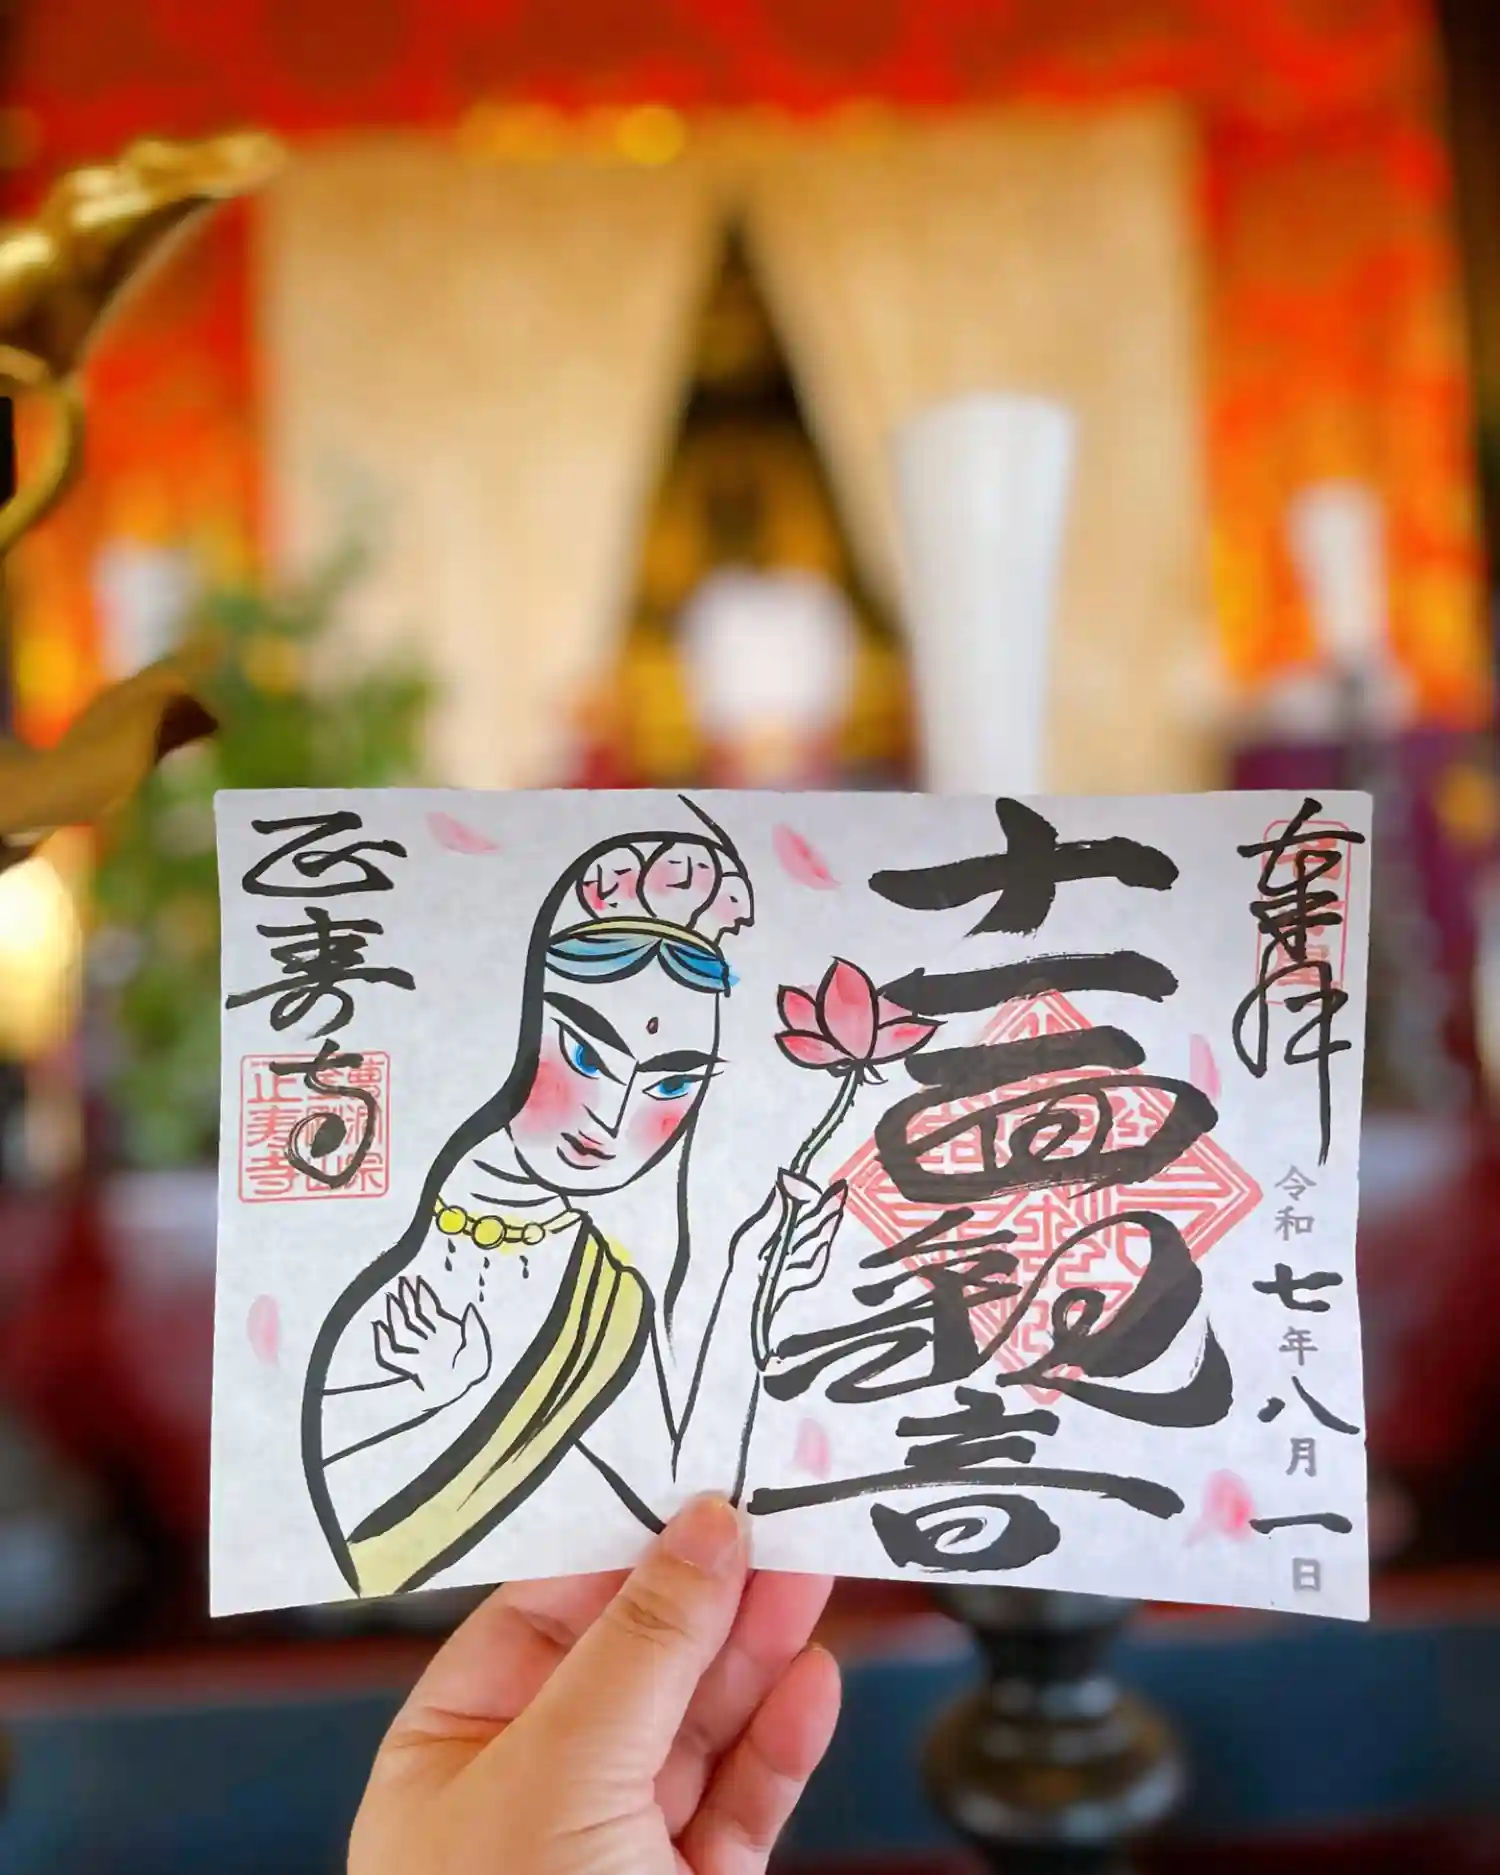 奉拝
令和七年八月一日
十一面観音
正寿寺
正寿寺